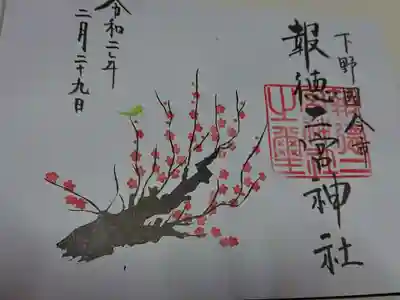 下野國今市
報徳二宮神社
令和二年
二月二十九日